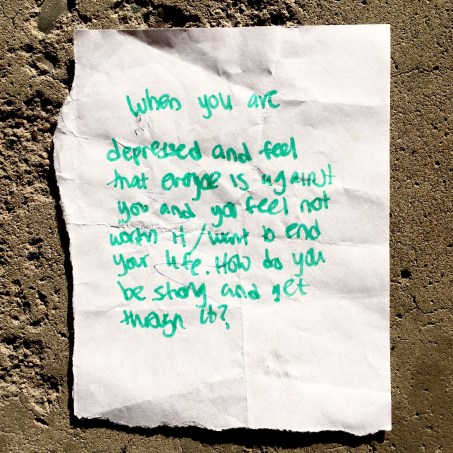 When you are
depressed and feel
that eroyoe is against
you and you feel not
worth it / want to end
your life. How do you
be strong and get
through it?